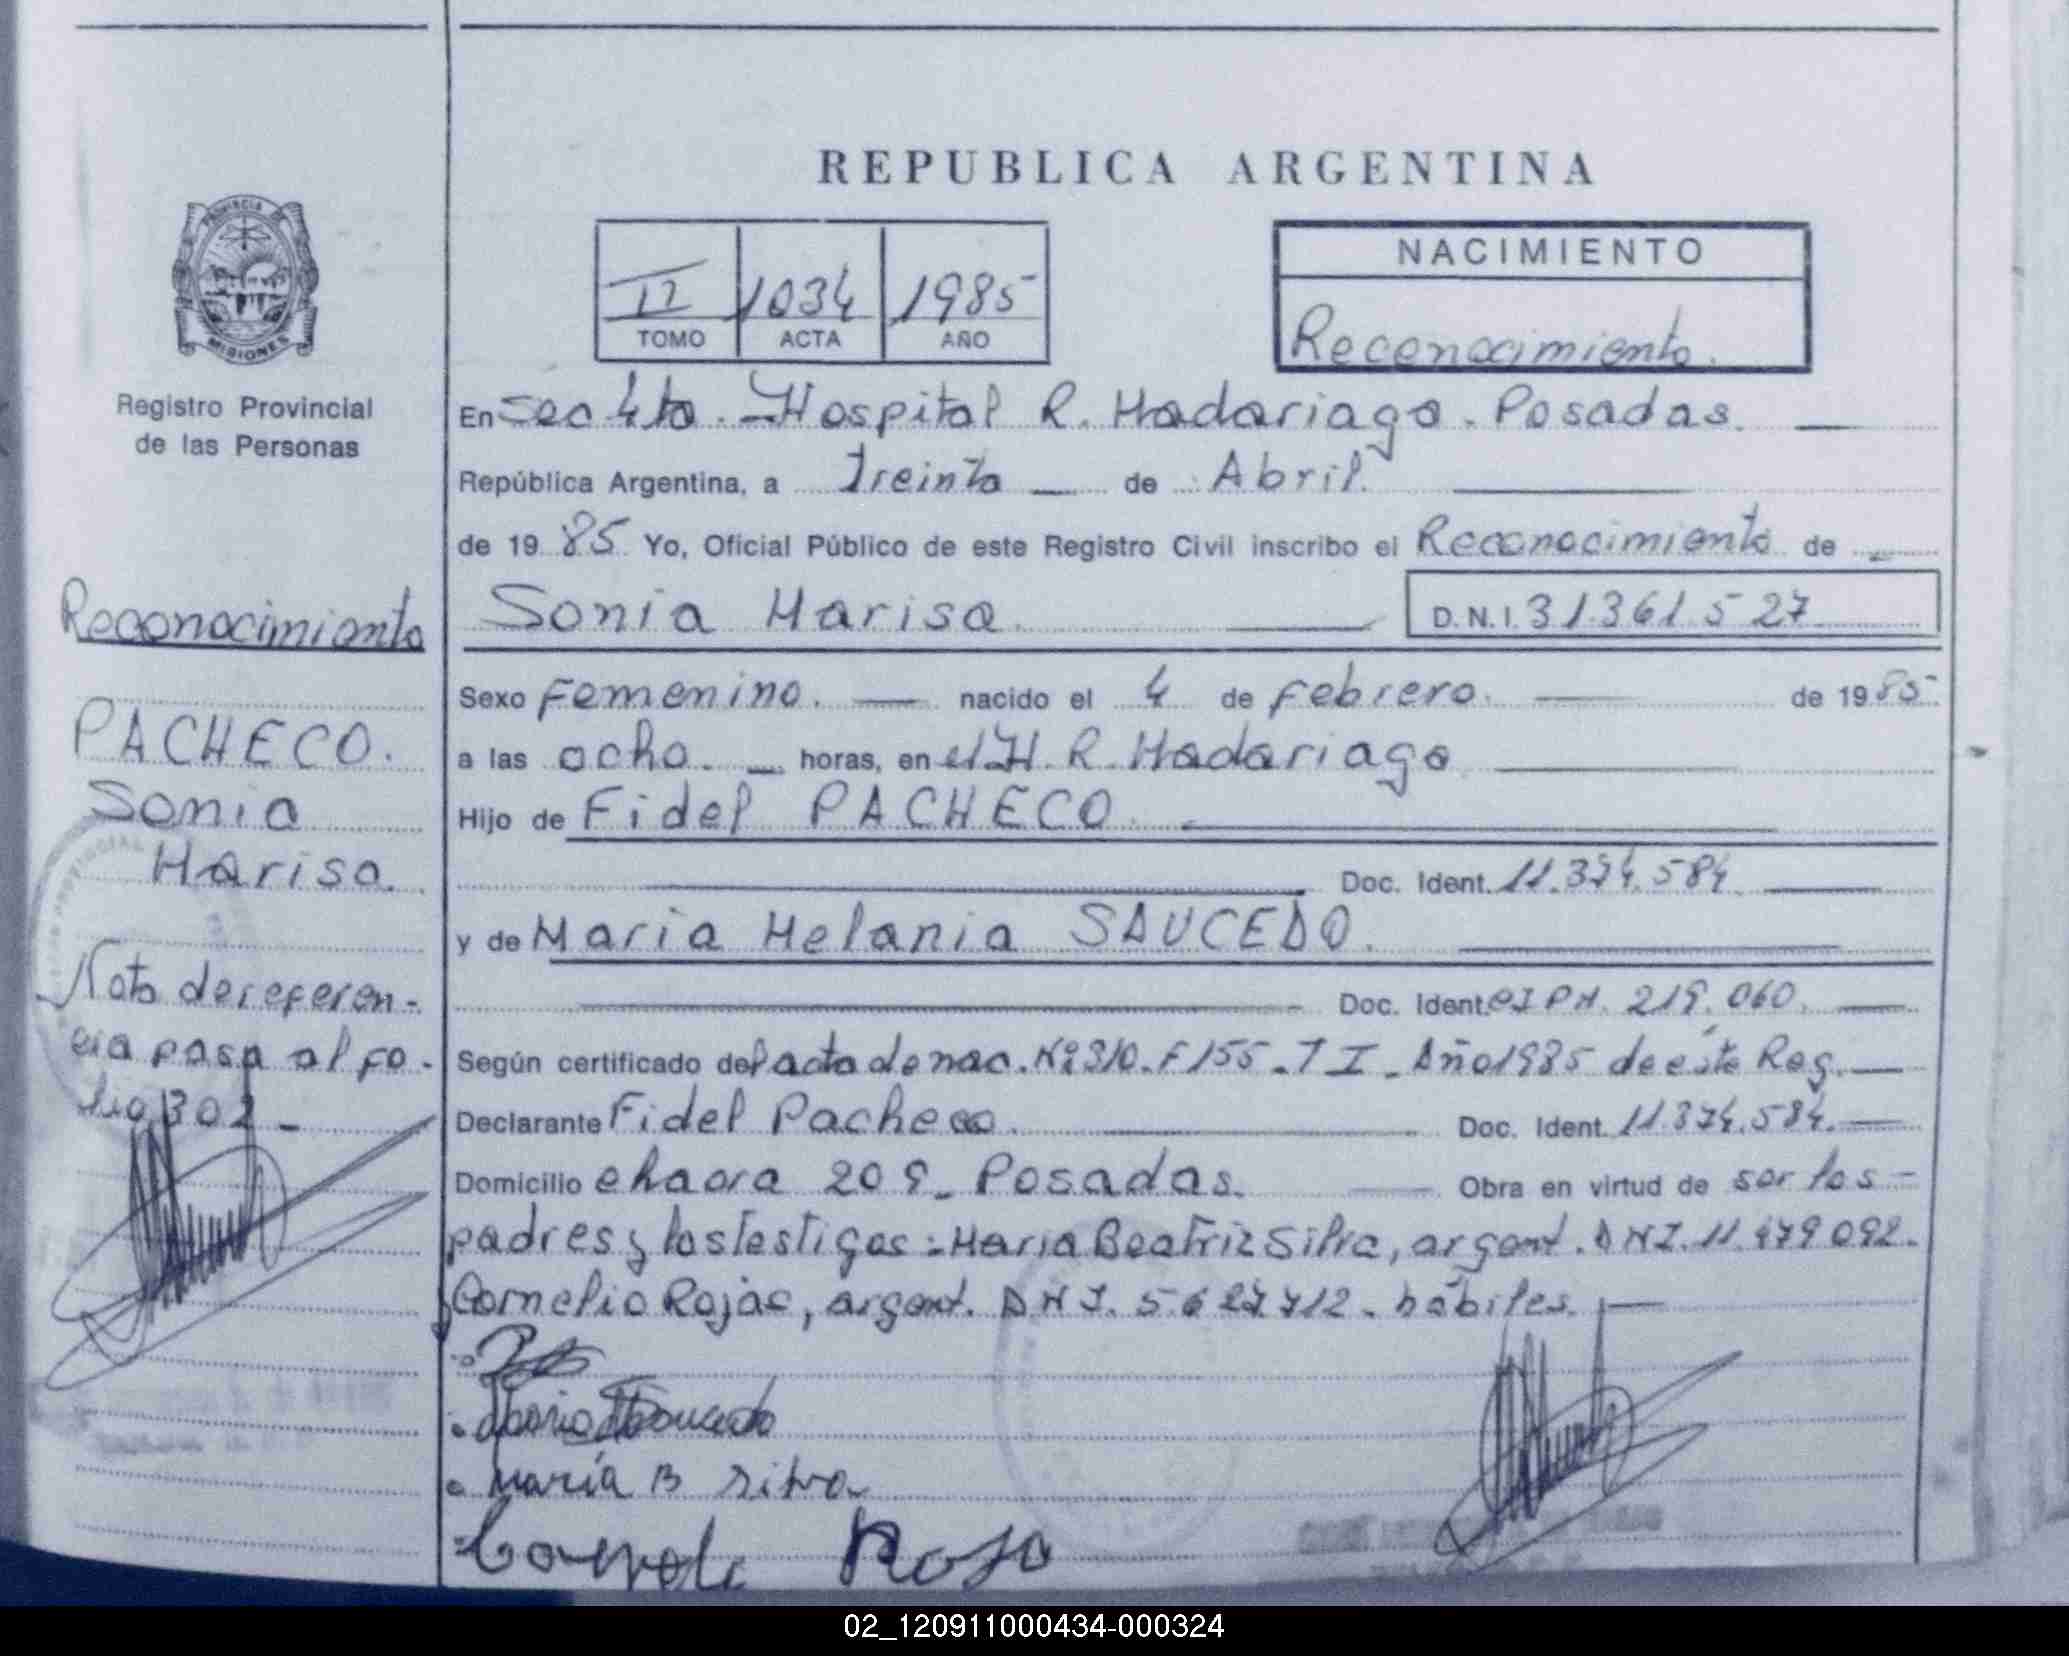 REPUBLICA ARGENTINA
PROVINCIA DE
MISIONES
Registro Provincial
de las Personas
II 1034 1985
TOMO ACTA AÑO
NACIMIENTO
Reconocimiento.
En Sec 4ta. - Hospital R. Madariaga. Posadas.
República Argentina, a treinta de Abril.
de 1985 Yo, Oficial Público de este Registro Civil inscribo el Reconocimiento de
Sonia Marisa. D.N.I. 31.361.527
Sexo Femenino. nacido el 4 de Febrero. de 1985
a las ocho. horas, en el H. R. Madariaga
Hijo de Fidel PACHECO.
Doc. Ident. 11.374.584
y de Maria Melania SAUCEDO.
Doc. Ident. CI PM. 219.060.
Según certificado del acta de nac. Nº 310. F 155. T I. Año 1985 de éste Reg.
Declarante Fidel Pacheco. Doc. Ident. 11.374.584.
Domicilio chacra 209. Posadas. Obra en virtud de ser los
padres y los testigos: Maria Beatriz Silva, argent. DNI. 11.479092.
Cornelio Rojas, argent. DNI. 5627712. hábiles.
María B Silva
Reconocimiento
PACHECO.
Sonia
Marisa.
Nota de referen-
cia pasa al fo-
lio 302 -
02_120911000434-000324